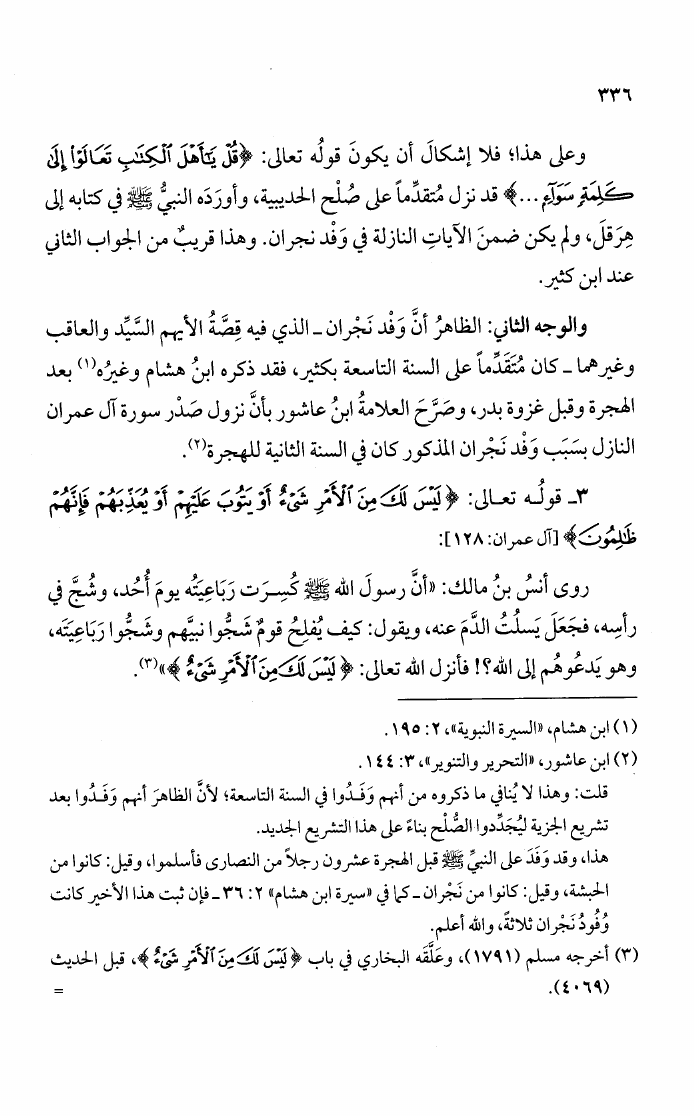 ٣٣٦
وعلى هذا؛ فلا إشكالَ أن يكونَ قولُه تعالى: ﴿قُلْ يَٰٓأَهْلَ ٱلْكِتَٰبِ تَعَالَوْا۟ إِلَىٰ
كَلِمَةٍ سَوَآءٍ ...﴾ قد نزل مُتقدِّماً على صُلْح الحديبية، وأورَدَه النبيُّ ﷺ في كتابه إلى
هِرَقلَ، ولم يكن ضمنَ الآياتِ النازلة في وَفْد نجران. وهذا قريبٌ من الجواب الثاني
عند ابن كثير.
والوجه الثاني: الظاهرُ أنَّ وَفْد نَجْران ـ الذي فيه قِصَّةُ الأيهم السَّيِّد والعاقب
وغيرهما ـ كان مُتَقَدِّماً على السنة التاسعة بكثير، فقد ذكره ابنُ هشام وغيرُه(١) بعد
الهجرة وقبل غزوة بدر، وصرَّحَ العلامةُ ابنُ عاشور بأنَّ نزول صَدْر سورة آل عمران
النازل بسَبَب وَفْد نَجْران المذكور كان في السنة الثانية للهجرة(٢).
٣ـ قولُـه تعـالى: ﴿لَيْسَ لَكَ مِنَ ٱلْأَمْرِ شَىْءٌ أَوْ يَتُوبَ عَلَيْهِمْ أَوْ يُعَذِّبَهُمْ فَإِنَّهُمْ
ظَٰلِمُونَ﴾ [آل عمران: ١٢٨]:
روى أنسُ بنُ مالك: «أنَّ رسولَ الله ﷺ كُسِـرَت رَبَاعِيَتُه يومَ أُحُد، وشُجَّ في
رأسِه، فجَعَلَ يَسلُتُ الدَّمَ عنه، ويقول: كيف يُفلِحُ قومٌ شَجُّوا نبيَّهم وشَجُّوا رَبَاعِيَتَه،
وهو يَدعُوهُم إلى الله؟! فأنزل الله تعالى: ﴿لَيْسَ لَكَ مِنَ ٱلْأَمْرِ شَىْءٌ﴾»(٣).
(١) ابن هشام، «السيرة النبوية»، ٢: ١٩٥.
(٢) ابن عاشور، «التحرير والتنوير»، ٣: ١٤٤.
قلت: وهذا لا يُنافي ما ذكروه من أنهم وَفَـدُوا في السنة التاسعة؛ لأنَّ الظاهرَ أنهم وَفَـدُوا بعد
تشريع الجزية ليُجَدِّدوا الصُّلْح بناءً على هذا التشريع الجديد.
هذا، وقد وَفَدَ على النبيِّ ﷺ قبل الهجرة عشرون رجلاً من النصارى فأسلموا، وقيل: كانوا من
الحبشة، وقيل: كانوا من نَجْران ـ كما في «سيرة ابن هشام» ٢: ٣٦ ـ فإن ثبت هذا الأخير كانت
وُفُودُ نَجْران ثلاثةً، والله أعلم.
(٣) أخرجه مسلم (١٧٩١)، وعَلَّقَه البخاري في باب ﴿لَيْسَ لَكَ مِنَ ٱلْأَمْرِ شَىْءٌ﴾، قبل الحديث
(٤٠٦٩). =